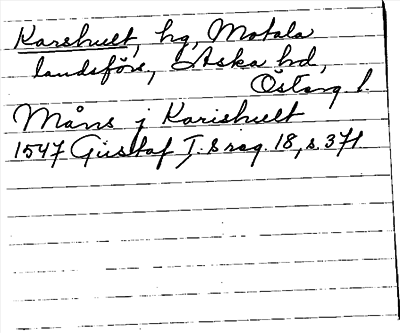 Karshult, hg, Motala
landsförs, Aska hd,
Östang l.
Måns j Karishult
1547 Gustaf I:s reg. 18, s. 371